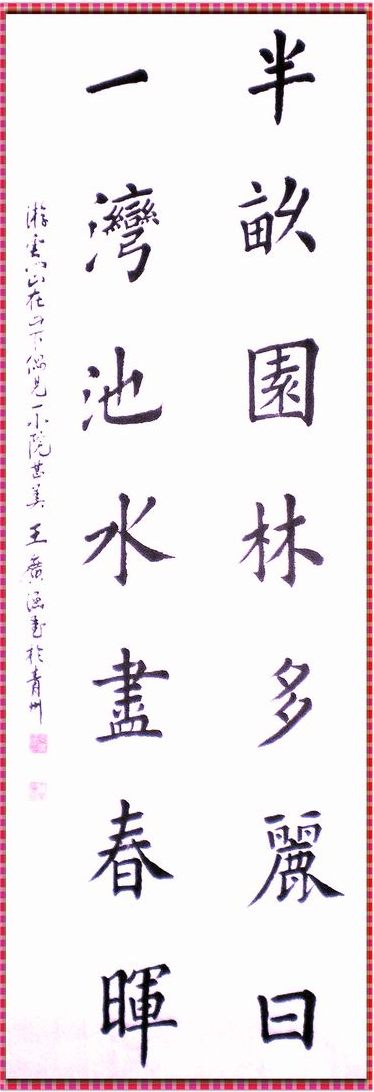 半畝園林多麗日
一灣池水盡春暉
游雲門山在山下偶見一小院甚美 王廣海書於青州